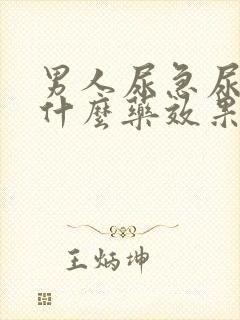 男人尿急尿
什麼藥效果
王炳坤